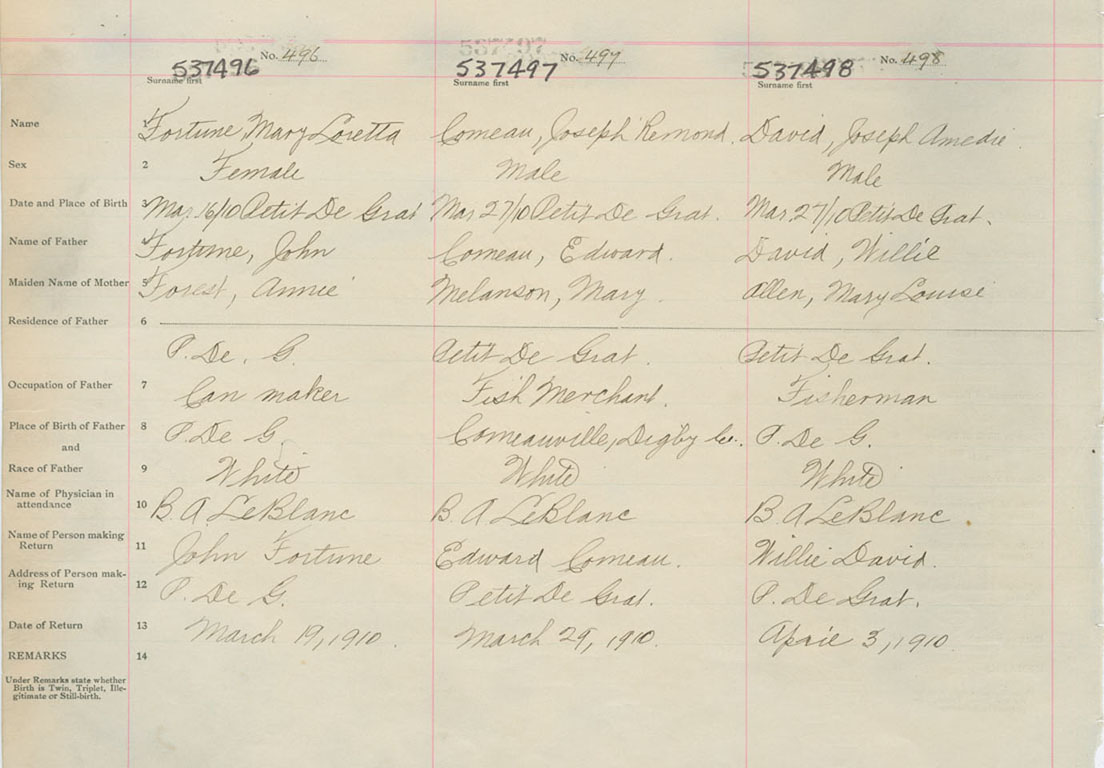 No. 496 No. 497 No. 498
537496 537497 537498
Surname first Surname first Surname first
Name 1 Fortune, Mary Loretta Comeau, Joseph Remond. David, Joseph Amedie.
Sex 2 Female Male Male
Date and Place of Birth 3 Mar 16/10 Petit De Grat Mar 27/10 Petit De Grat. Mar. 27/10 Petit De Grat.
Name of Father 4 Fortune, John Comeau, Edward. David, Willie
Maiden Name of Mother 5 Forest, Annie Melanson, Mary. Allen, Mary Louise
Residence of Father 6
P. De. G. Petit De Grat. Petit De Grat.
Occupation of Father 7 Can maker Fish Merchant. Fisherman
Place of Birth of Father 8 P. De G. Comeauville, Digby Co. P. De G.
and
Race of Father 9 White White White
Name of Physician in
attendance 10 B. A LeBlanc B. A LeBlanc B. A LeBlanc
Name of Person making
Return 11 John Fortune Edward Comeau. Willie David.
Address of Person mak-
ing Return 12 P. De G. Petit De Grat. P. De Grat.
Date of Return 13 March 19, 1910. March 29, 1910. April 3, 1910
REMARKS 14
Under Remarks state whether
Birth is Twin, Triplet, Ille-
gitimate or Still-birth.